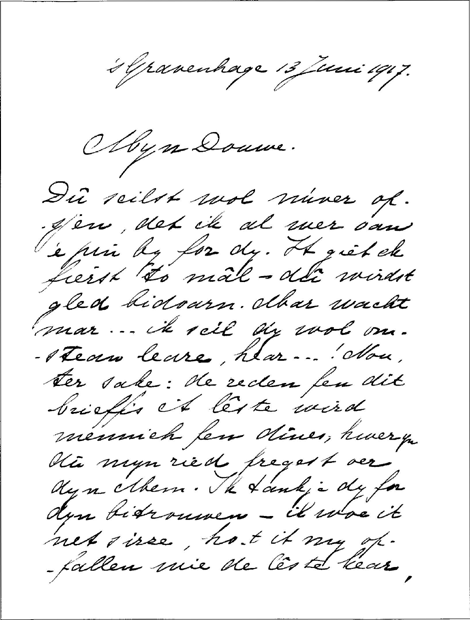 's Gravenhage 13 Juni 1917.
Myn Douwe.
Dû seilst wol nuver op-
-sjen, det ik al wer oan
'e pin by for dy. It giet ek
fierst to mâl - dû wirdst
gled bidoarn. Mar wacht
mar ... ik scil dy wol om-
-stean leare, hear ... ! Nou,
ter sake: de reden fen dit
brief is it lêste wird
mennich fen dines, hwer yn
dû myn ried fregest oer
dyn Mem. Ik tankje dy for
dyn bitrouwen - ik woe it
net sizze, ho-t it my op-
-fallen wie de lêste kear,